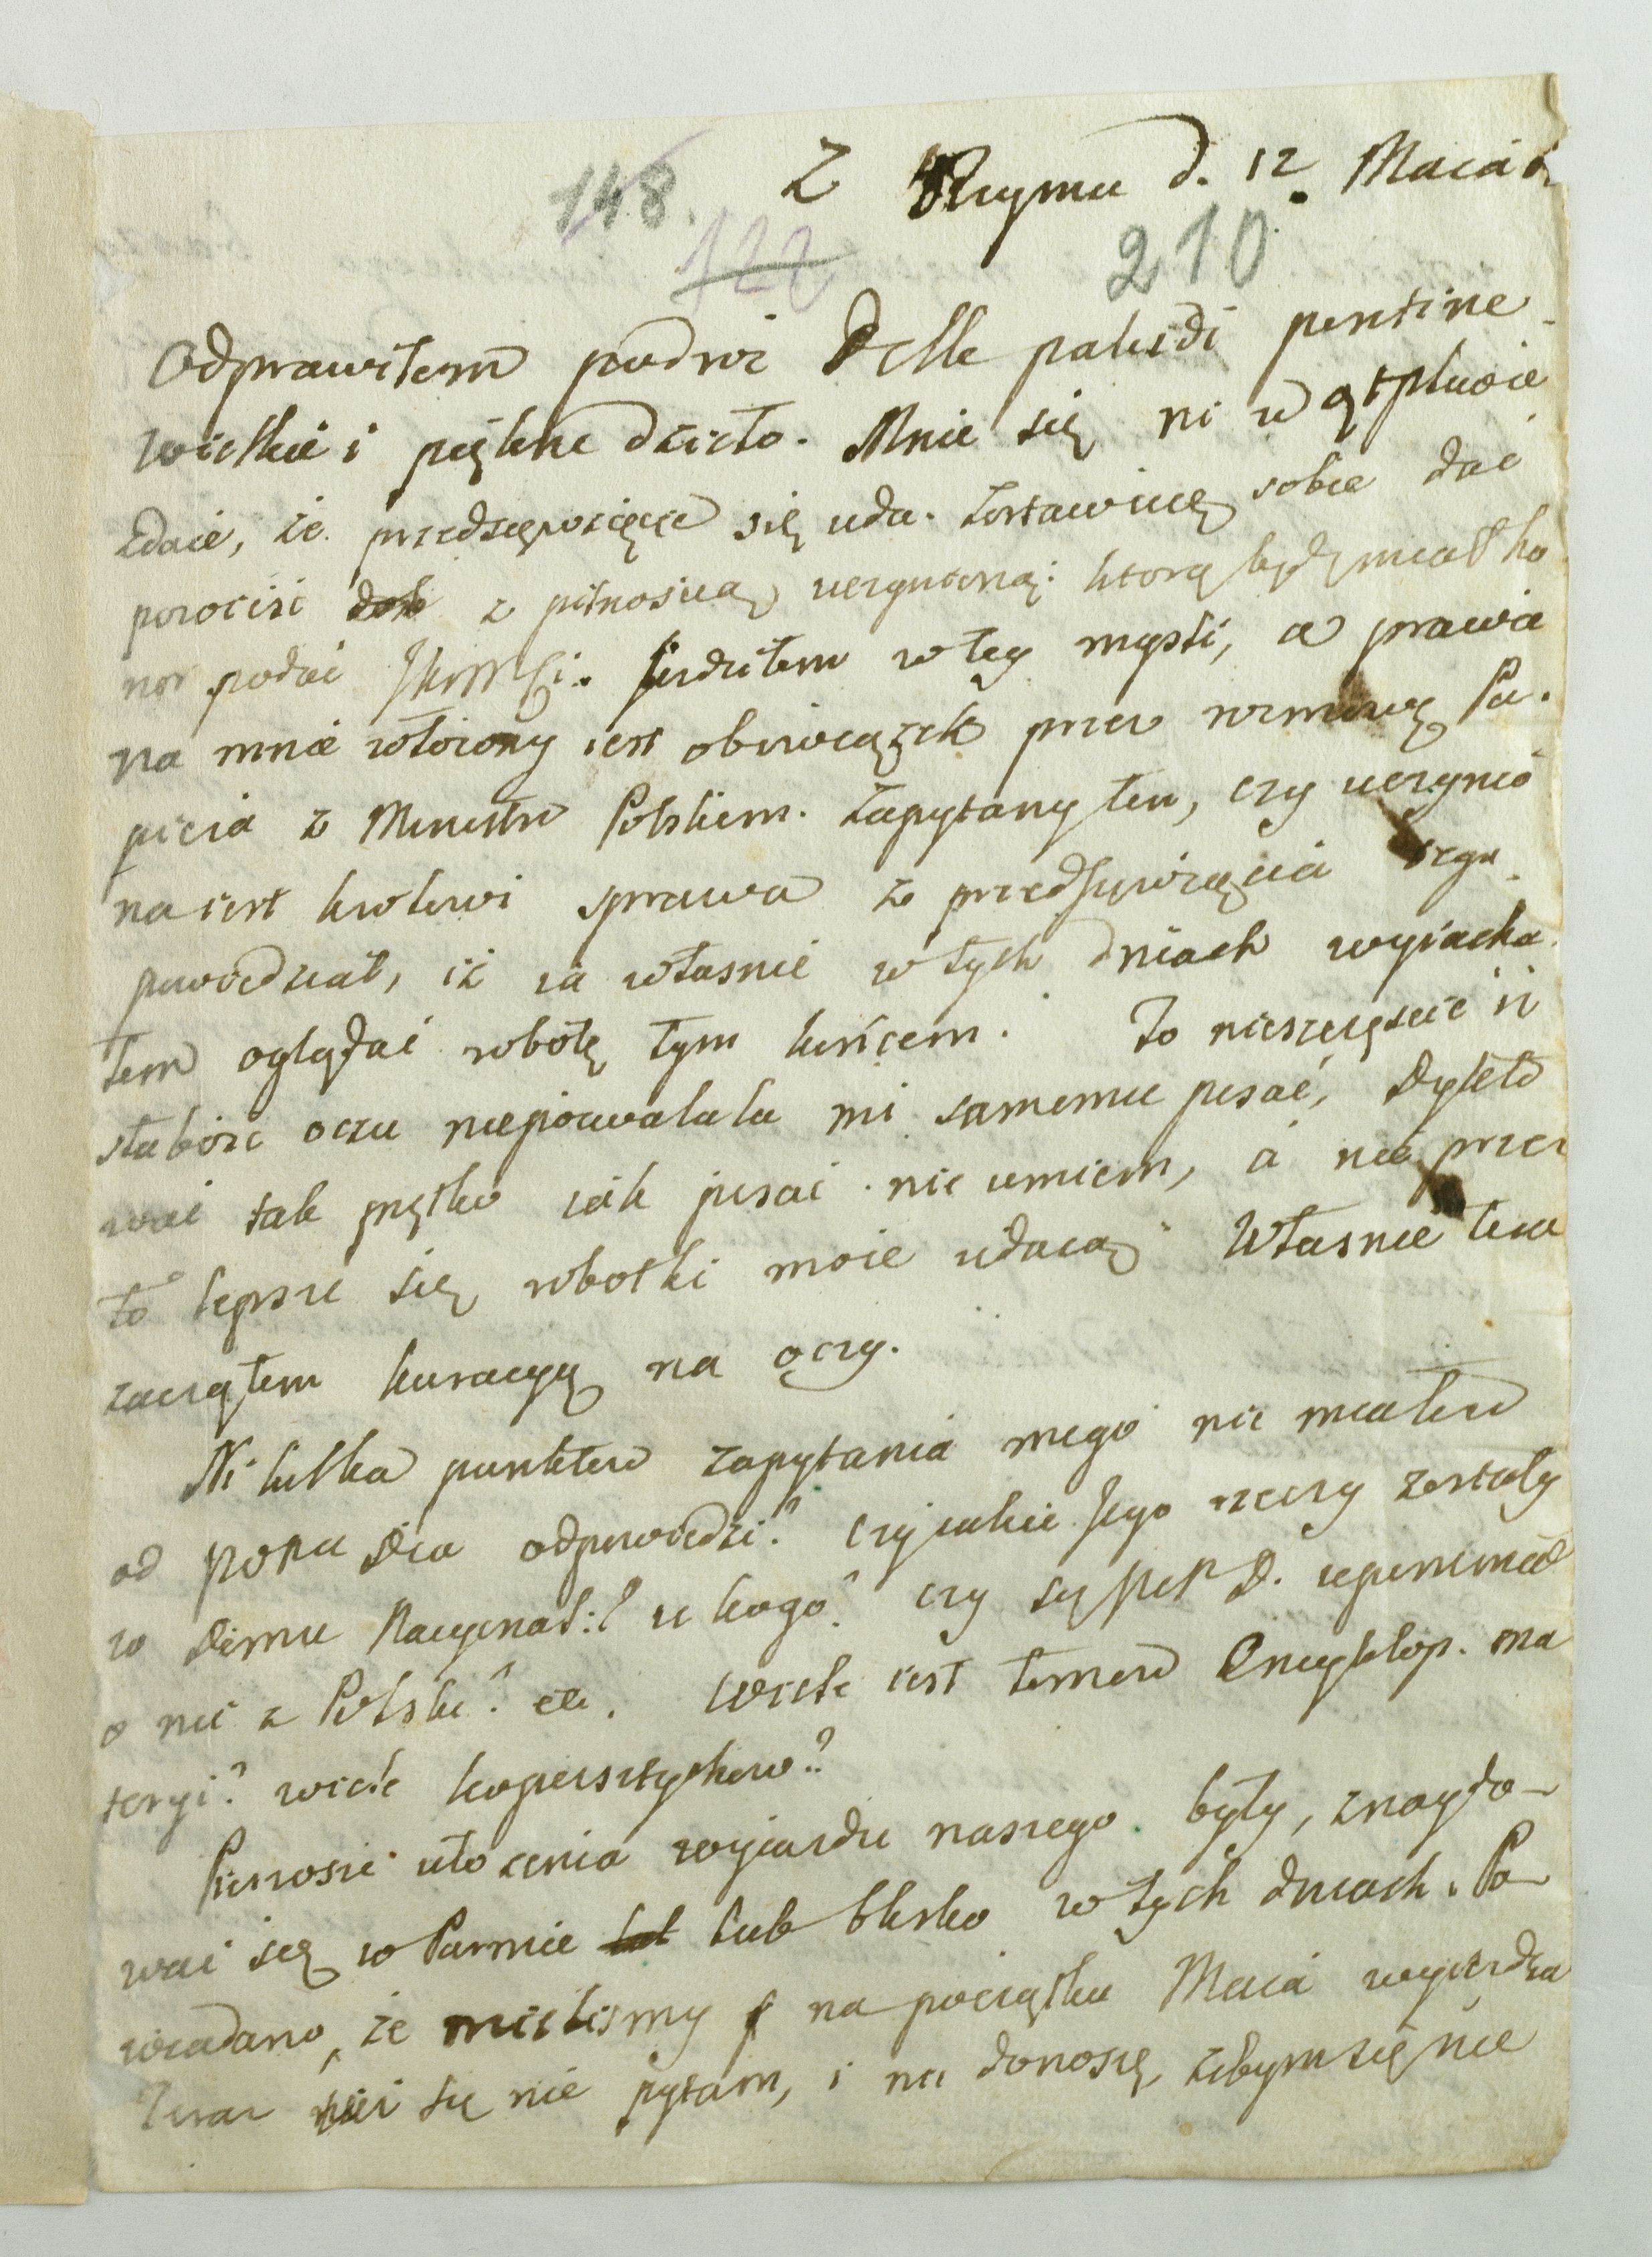 148. Z Rzymu d. 12 Maia
122 210
Odprawiłem podroż Delle paludi pontine
wielkie i piękne dzieło. Mnie się ni wątpliwie
zdaie, że przedsięwzięcie się uda. Zostawuię sobie dać
powieść z pilnoscią uczynioną: ktorą będę miał ho
nor podać JKMSci. sądziłem w tey mysli, a prawie
na mnie włożony iest obowiązek przez rozmowę Pa-
pieża z Ministr Polskiem. Zapytany ten, czy uczynio
na iest krolowi sprawa z przedsięwzięcia tego
powiedział, iż ia własnie w tych dniach wyiacha
łem oglądać robotę tym końcem. To nieszczęscie iż
słabość oczu niepozwalała mi samemu pisać, Dykto
wać tak prętko iak pisać nie umiem, a nie przez
to lepsze się robotki moie udaią. Własnie tera
zacząłem kuracyą na oczy.
Ni kilka punktow zapytania mego nie miałem
od odpowiedzi? czy iakie Jego rzeczy zostały
w Domu u kogo? czy się upominał
o nie z Polski? etc. Wiele iest tomow Encyklop. ma
teryi? wiele kopersztychow?
Pierwsze ułożenia wyiazdu naszego były, znaydo-
wać się w Parmie lub blisko w tych dniach. Po
wiadano, że mielismy na początku Maia wyieżdża
Teraz się nie pytam, i nie donoszę, żebym się nie